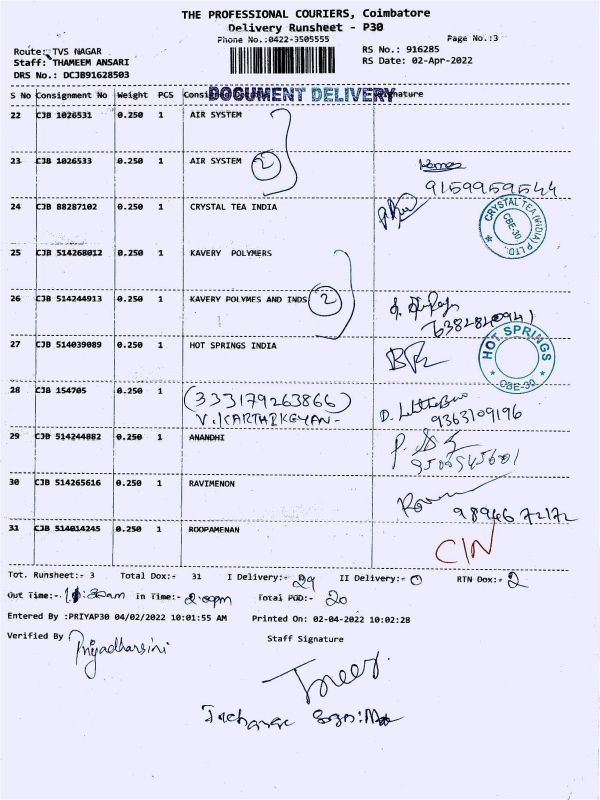 THE PROFESSIONAL COURIERS, Coimbatore
Delivery Runsheet - P30
Phone No.:0422-3505555
Page No.:3
Route: TVS NAGAR
RS No.: 916285
Staff: THAMEEM ANSARI
RS Date: 02-Apr-2022
DRS No.: DCJB91628503
DOCUMENT DELIVERY
S No Consignment No Weight PCS
22 CJB 1026531 0.250 1 AIR SYSTEM
23 CJB 1026533 0.250 1 AIR SYSTEM 2
9159959544
24 CJB 88287102 0.250 1 CRYSTAL TEA INDIA
CRYSTAL TEA (INDIA) P LTD. CBE-30
25 CJB 514268012 0.250 1 KAVERY POLYMERS
26 CJB 514244913 0.250 1 KAVERY POLYMES AND INDS 2
27 CJB 514039089 0.250 1 HOT SPRINGS INDIA
HOT SPRINGS CBE-30
28 CJB 154705 0.250 1 (333179263866)
V.KARTHIKEYAN-
9363109196
29 CJB 514244882 0.250 1 ANANDHI
30 CJB 514265616 0.250 1 RAVIMENON
98946 72172
31 CJB 514014245 0.250 1 ROOPAMENAN
CIN
Tot. Runsheet:- 3 Total Dox:- 31 I Delivery:- 29 II Delivery:- 0 RTN Dox:- 2
Out Time:- In Time:- 2:00pm Total POD:- 20
Entered By :PRIYAP30 04/02/2022 10:01:55 AM Printed On: 02-04-2022 10:02:28
Verified By Priyadharsini
Staff Signature